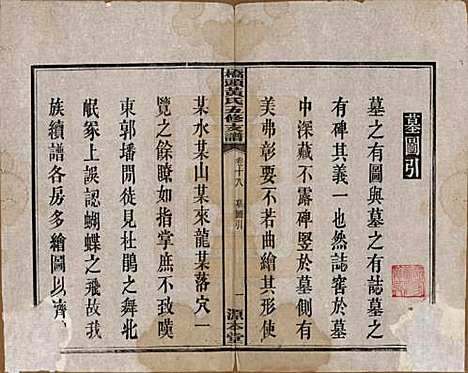 墓圖引
墓之有圖與墓之有誌墓之
有碑其義一也然誌窖於墓
中深藏不露碑豎於墓側有
美弗彰要不若曲繪其形使
橋頭黃氏五修支譜
卷十八
墓圖引
一
源本堂
某水某山某來龍某落穴一
覽之餘瞭如指掌庶不致嘆
東郭墦閒徒見杜鵑之舞北
岷冢上誤認蝴蝶之飛故我
族續譜各房多繪圖以濟